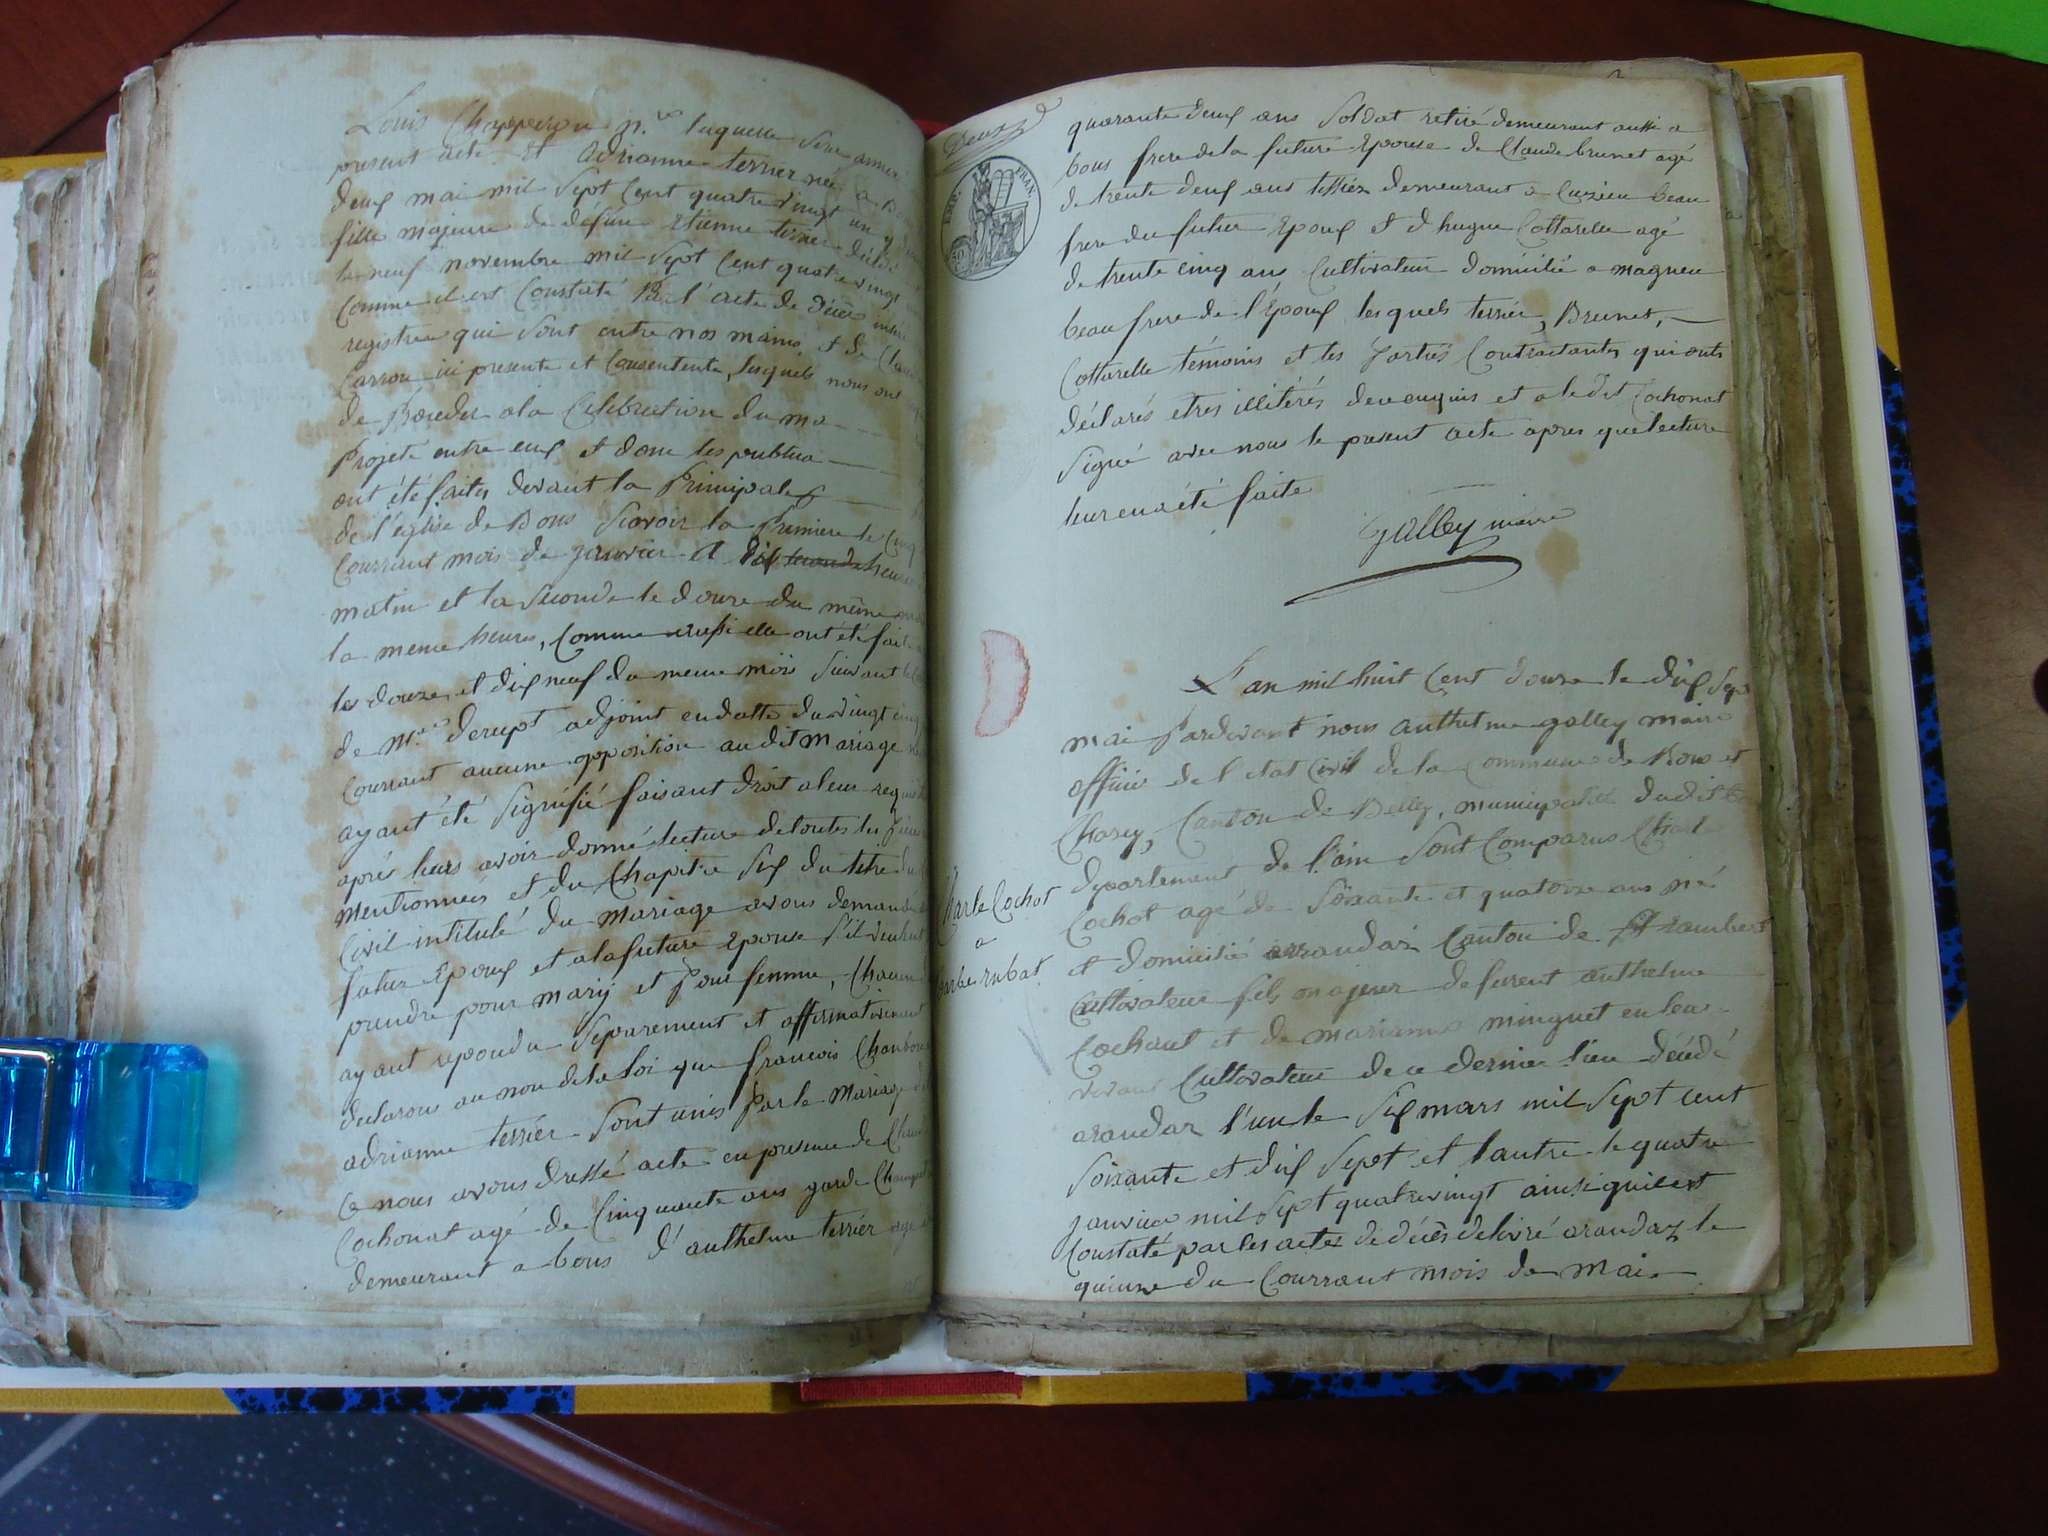 Louis Chapperon n.re laquelle sera annex
present acte et adrianne terrier née a
deux mai mil sept cent quatre vingt un
fille majeure de défun etienne terrier décédé
le neuf novembre mil sept cent quatre vingt
comme il est constaté Par l'acte de décès
registres qui sont entre nos mains et de
Carrou ici presente et consentente, lesquels nous ont
de Proceder a la Celebration du ma
Projeté entre eux et dont les publica
ont été faites devant la Principale
de l'église de Bons scavoir la Premiere le cinq
courrant mois de janvier a dix seconde heure
matin et la seconde le douze du même
la meme heure, comme aussi elle ont été fait
les douze et dix neuf du meme mois suivant
de Mr. derupt adjoint en datte du vingt cinq
courrant aucune opposition audit mariage
ayant été signifié faisant droit a leur requi
après leurs avoir donné lecture de toutes les
mentionnées et du Chapitre six du titre du
Civil intitulé du mariage avons demandé
futur Epoux et a la future Epouse s'il veulent
prendre pour mary et pour femme, chacun
ayant repondu séparement et affirmativement
declarons au nom de la loi que francois
adrianne terrier sont unis par le mariage
Ce nous avons dressé acte en presence de
Cochonat agé de cinquante ans garde Champet
demeurant a bons d'anthelme terrier agé
Deux
EMP. FRAN.
quarante deux ans soldat retiré demeurant aussi a
bons frere de la future Epouse de Claude brunet agé
de trente deux ans tessier demeurant a Cuzieu beau
frere du futur Epoux et d hugue Cottarelle agé
de trente cinq ans Cultivateur domicilié a magneu
beau frere de l'Epoux lesquels terrier, Brunet,
Cottarelle témoins et les parties Contractantes qui onts
déclarés etres illitérés de ce enquis et a ledit Cochonat
signé avec nous le present acte apres que lecture
leur en a été faite
Galley maire
L'an mil huit cent douze le dix sept
mai Pardevant nous anthelme galley maire
officier de l etat Civil de la Commune de Bons et
Chazey, Canton de Belley, municipalité dudit
departement de l'ain sont Comparus Charle
Cochot agé de soixante et quatorze ans né
et domicilié arrandas Canton de St rambert
Cultivateur fils majeur defurent anthelme
Cochaut et de marianne minguet en leur
vivant Cultivateur de ce dernier lieu décédé
arandas l'un le six mars mil sept cent
soixante et dix sept et l'autre le quatre
janvier mil sept quatrevingt ainsi qu'il est
Constaté par les actes de décès delivré arandaz le
quinze du Courrant mois de Mai
Charle Cochot
a
barbe rubat